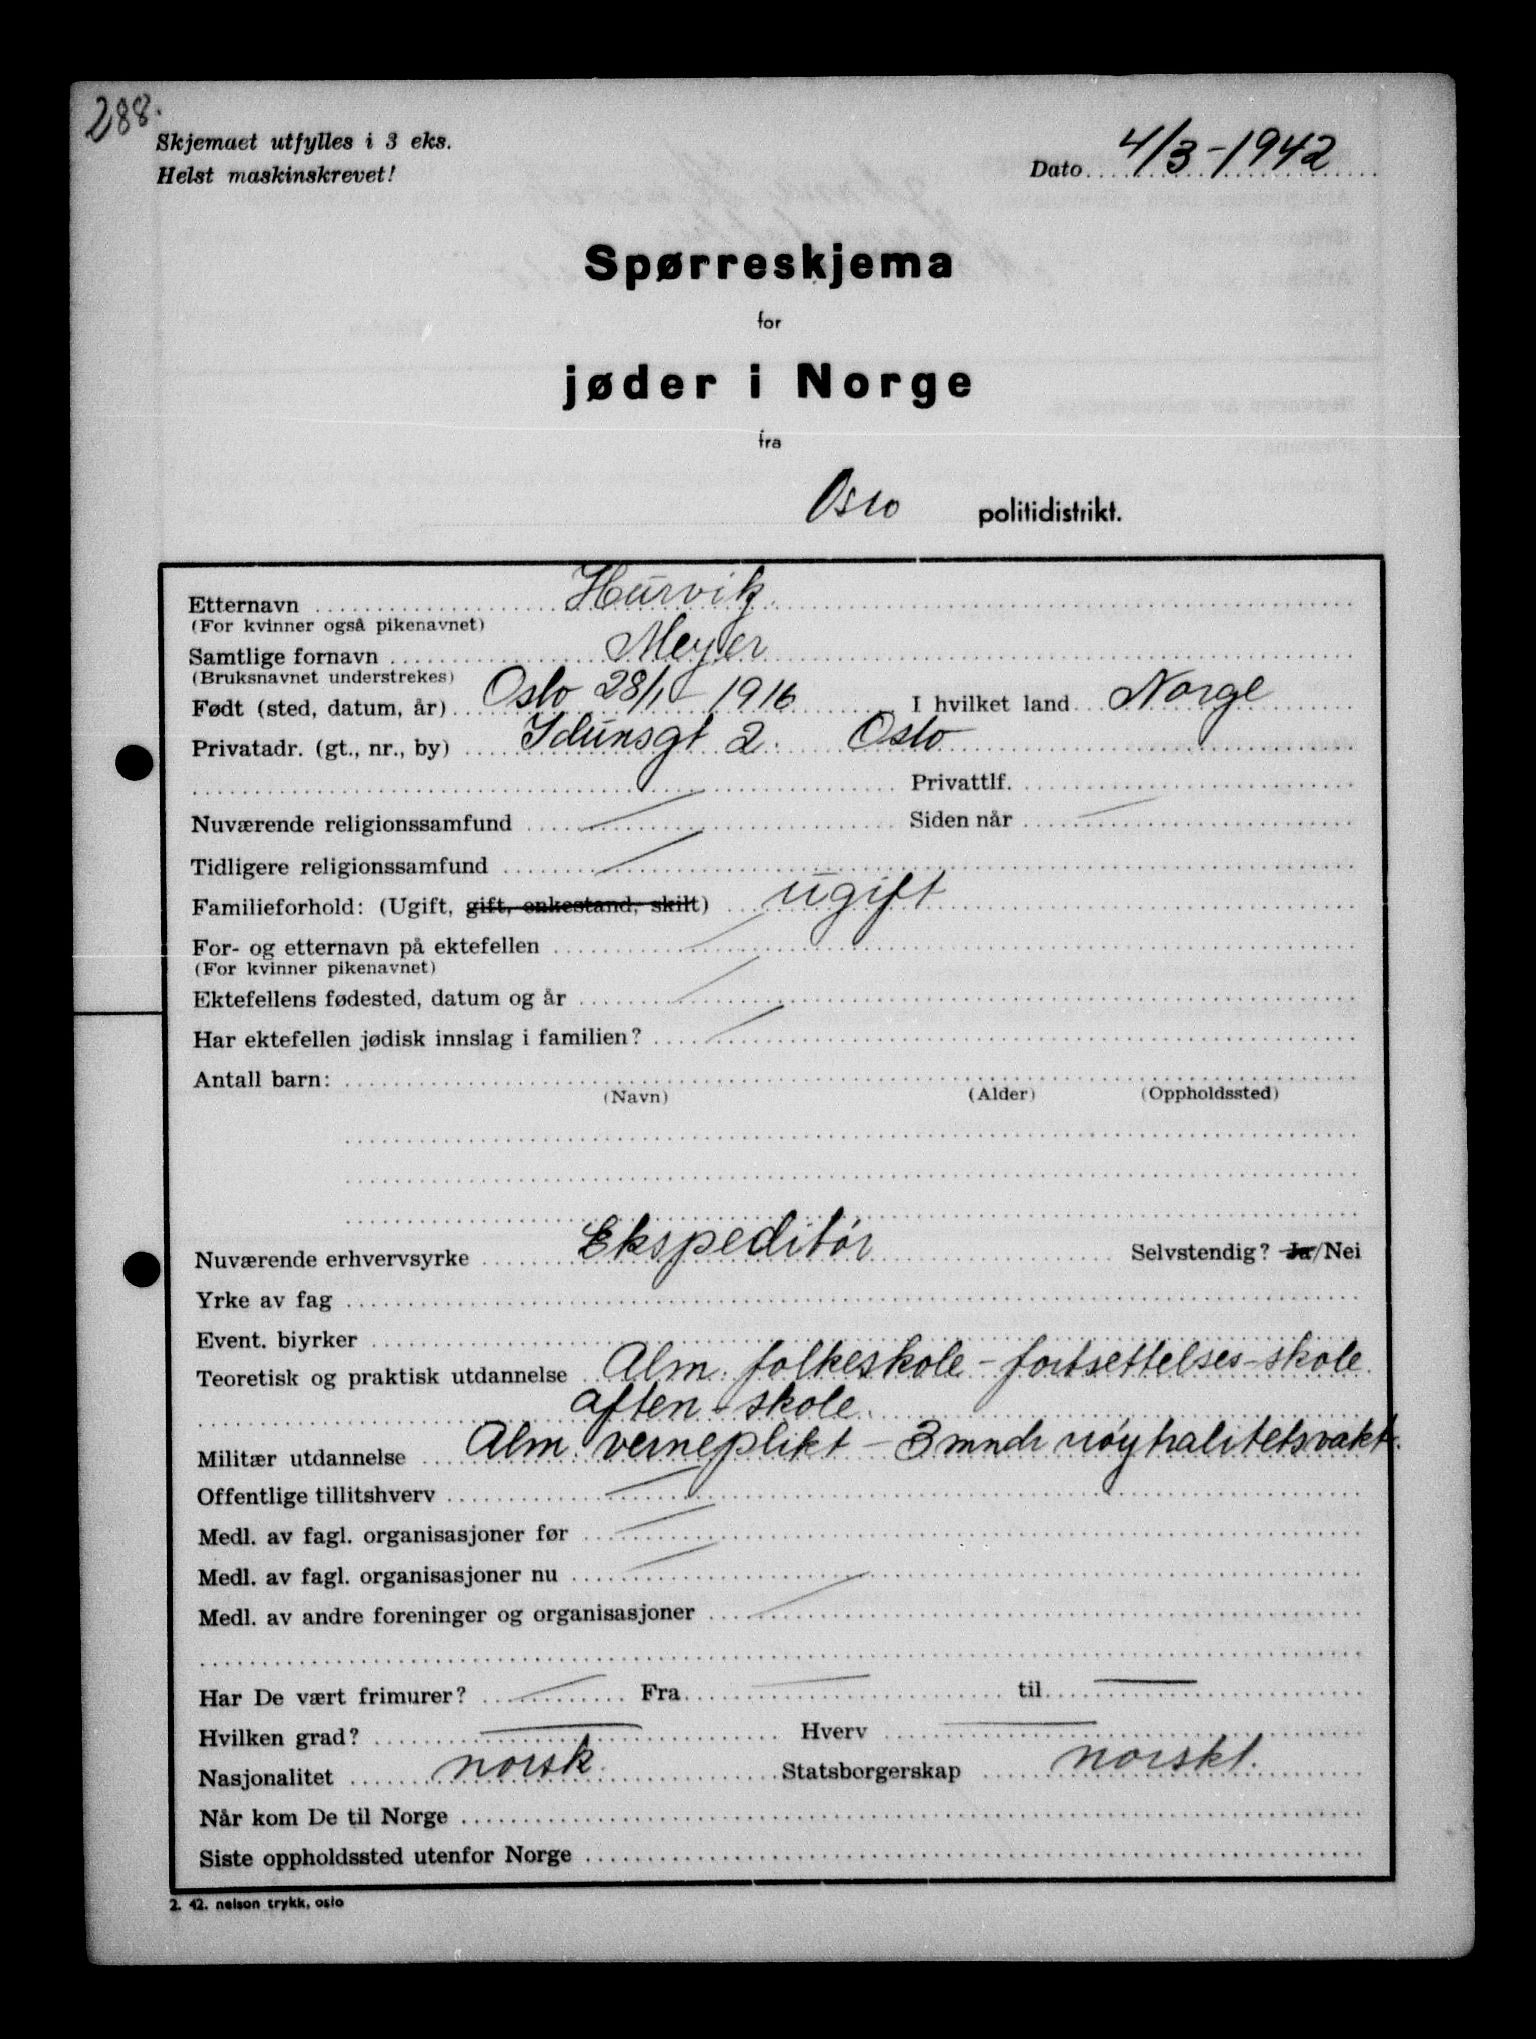 288.
Skjemaet utfylles i 3 eks.
Helst maskinskrevet!
Dato 4/3-1942
Spørreskjema
for
jøder i Norge
fra
Oslo politidistrikt.
Etternavn Hurvitz
(For kvinner også pikenavnet)
Samtlige fornavn Meyer
(Bruksnavnet understrekes)
Født (sted, datum, år) Oslo 28/1 - 1916 I hvilket land Norge
Privatadr. (gt., nr., by) Idunsgt 2. Oslo
Privattlf.
Nuværende religionssamfund Siden når
Tidligere religionssamfund
Familieforhold: (Ugift, gift, enkestand, skilt) ugift
For- og etternavn på ektefellen
(For kvinner pikenavnet)
Ektefellens fødested, datum og år
Har ektefellen jødisk innslag i familien?
Antall barn:
(Navn) (Alder) (Oppholdssted)
Nuværende erhvervsyrke Ekspeditør Selvstendig? Ja/Nei
Yrke av fag
Event. biyrker
Teoretisk og praktisk utdannelse Alm. folkeskole - fortsettelses-skole
aften-skole.
Militær utdannelse Alm. verneplikt - 3 mndr nøytralitetsvakt.
Offentlige tillitshverv
Medl. av fagl. organisasjoner før
Medl. av fagl. organisasjoner nu
Medl. av andre foreninger og organisasjoner
Har De vært frimurer? Fra til
Hvilken grad? Hverv
Nasjonalitet norsk. Statsborgerskap norskt.
Når kom De til Norge
Siste oppholdssted utenfor Norge
2. 42. nelson trykk, oslo